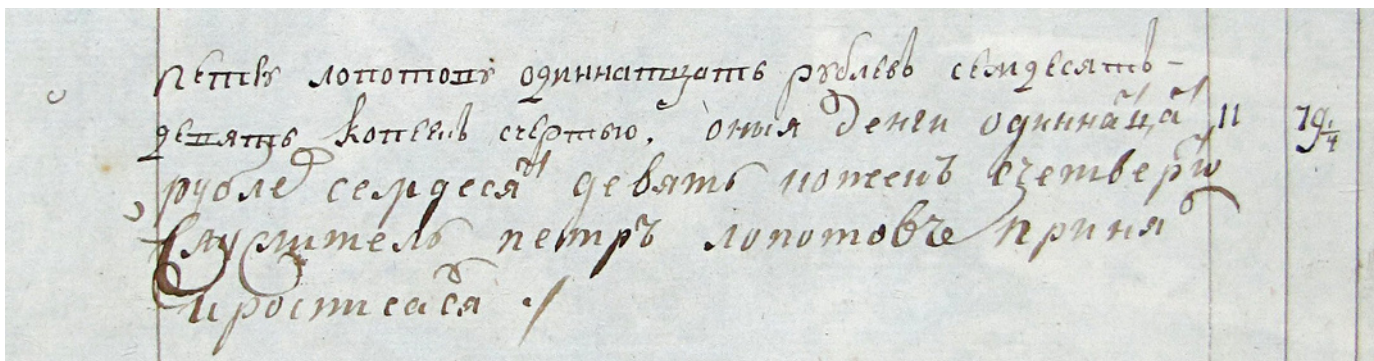 петру лопотову одиннатцать рублевъ семдесять
девять копеекъ счетвертью, оныя денги одиннаца 11 79 1/4
рубле семдеся девять копеекъ счетверт
служитель петръ лопотовъ приня
и росписался